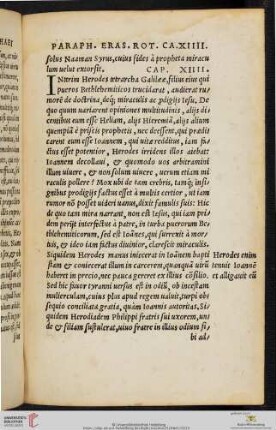 PARAPH. ERAS. ROT. CA. XIIII.
solus Naaman Syrus, cuius fides à propheta miracu
lum uelut extorsit. CAP. XIIII.
INterim Herodes tetrarcha Galilææ, filius eius qui
pueros Bethlehemiticos trucidarat, audierat ru
morẽ de doctrina, deq́; miraculis ac
De quo quum uariarent opiniones multitudinis, alijs di
centibus eum esse Heliam, alijs Hieremiã, alijs alium
quempiã è priscis prophetis, nec deessent, qui prædi
carent eum esse Ioannem, qui reuixisset, iam
esse potentior, Herodes irridens illos aiebat
Ioannem decollaui, & quomodo uos arbitramini
illum uiuere, & non solum uiuere, uerum etiam mi
racula pollere? Mox ubi de tam crebris, tamq́; insi
gnibus prodigijs factus esset à multis certior, ut iam
rumor nõ posset uideri uanus, dixit famulis suis: Hic
de quo tam mira narrant, non est Iesus, qui iam pri
dem perijt interfectus à patre, in turba puerorum Be
thlehemiticorum, sed est Ioãnes, qui surrexit à mor
tuis, & ideo iam factus diuinior, clarescit miraculis.
Siquidem Herodes manus iniecerat in Ioãnem bapti
stam & coniecerat illum in carcerem, quanquã uirũ
haberet in precio, nec pauca gereret ex illius cõsilio.
Sed hic fuior tyranni uersus est in odiũ, ob incestam
mulierculam, cuius plus apud regem ualuit,
sequio conciliata gratia, quàm Ioannis autoritas. Si
quidem Herodiadem Philippi fratris sui uxorem, un
de & filiam sustulerat, uiuo fratre in illius odium si/
bi ad/
Herodes enim
tenuit Ioannẽ
et alligauit eũ